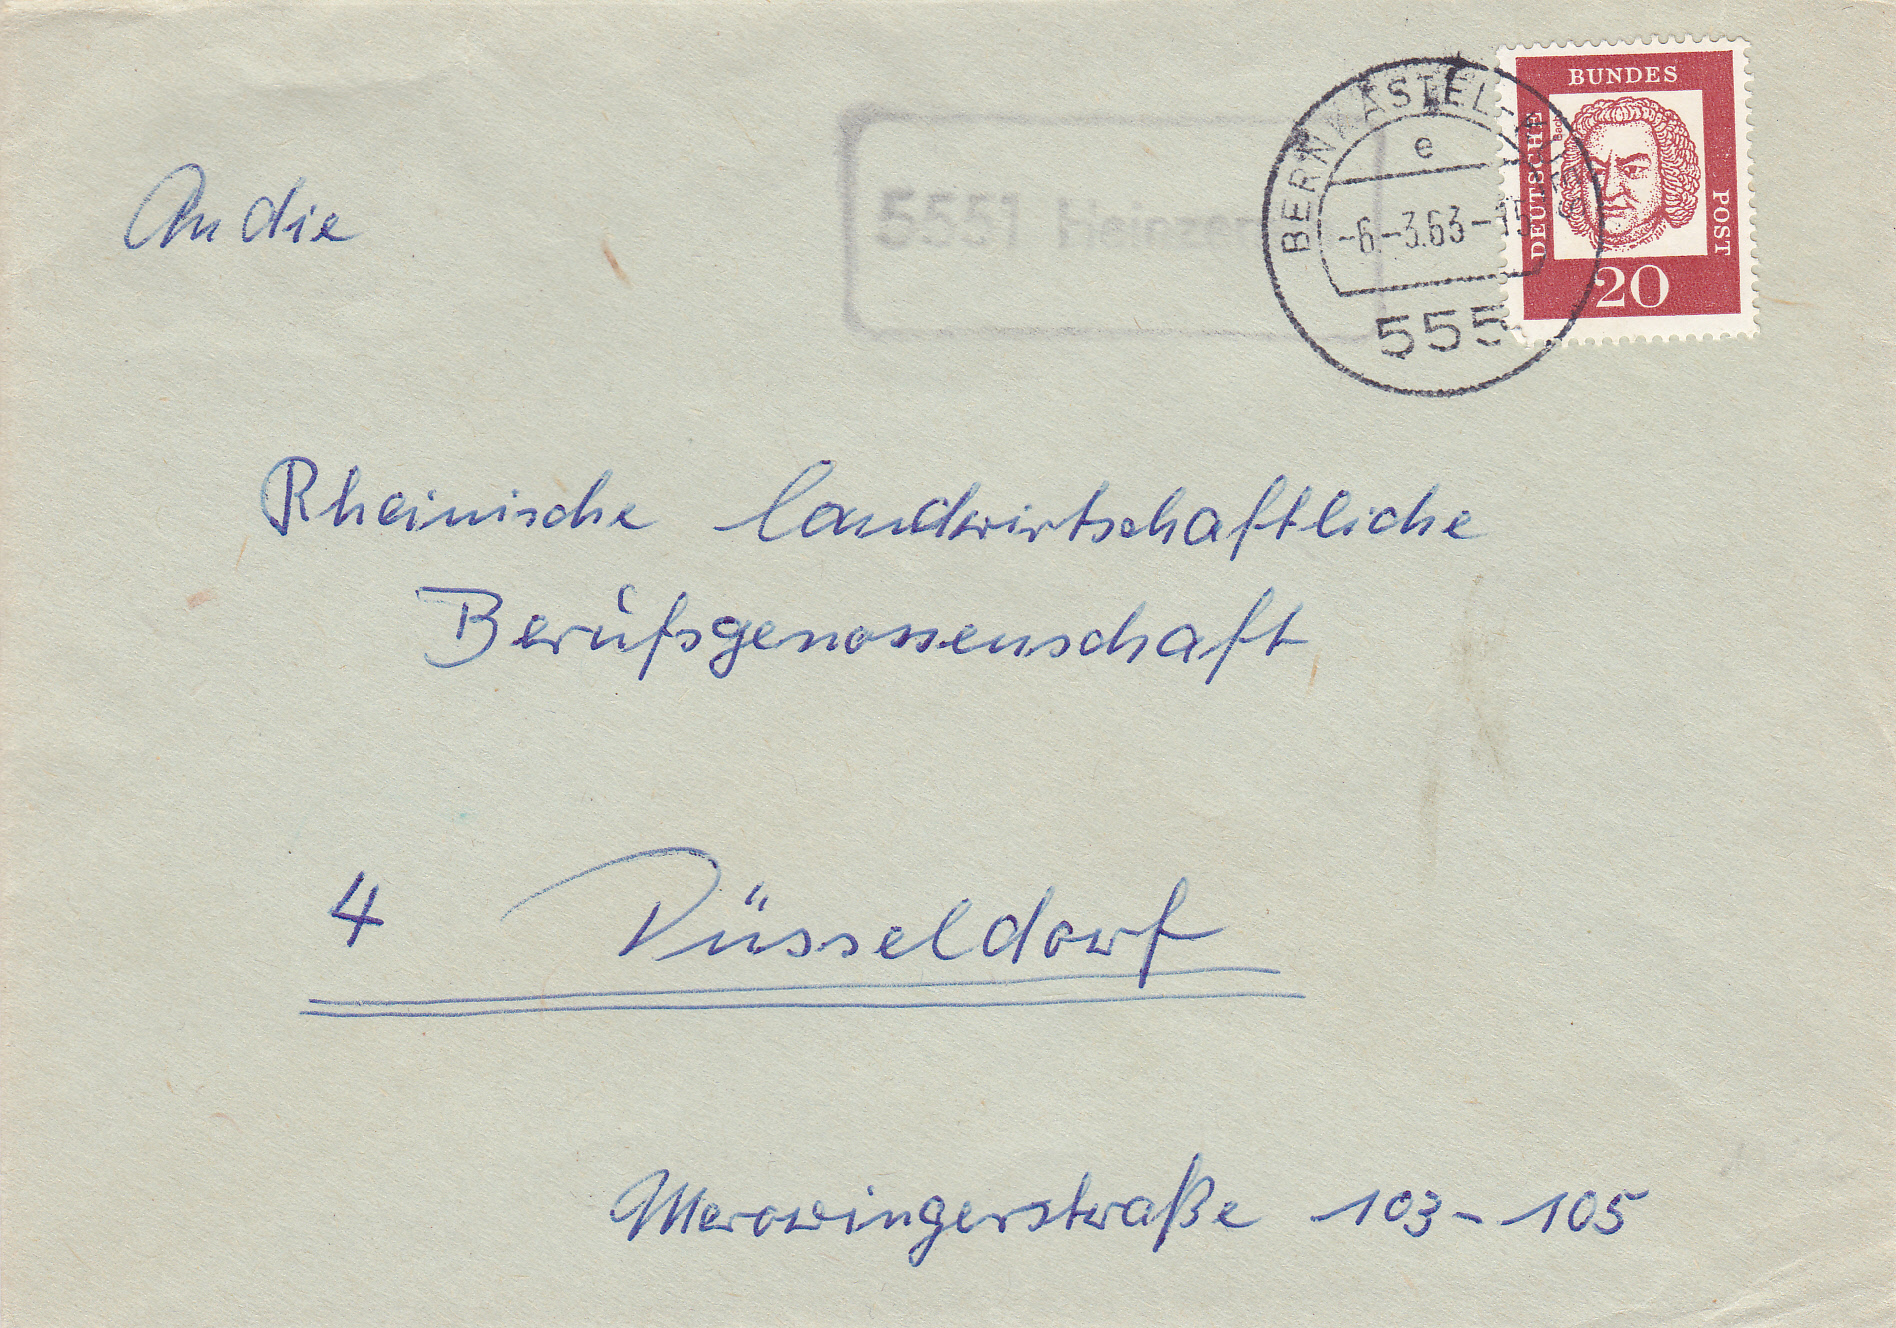 An die
5551
BERNKASTEL-KUES
e
-6.-3.63-15
555
DEUTSCHE
BUNDES
POST
Bach
20
Rheinische landwirtschaftliche
Berufsgenossenschaft
4 Düsseldorf
Merowingerstraße 103-105